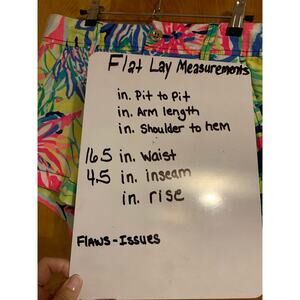 Flat Lay Measurements
in. Pit to Pit
in. Arm length
in. Shoulder to hem
16.5 in. Waist
4.5 in. inseam
in. rise
Flaws-Issues